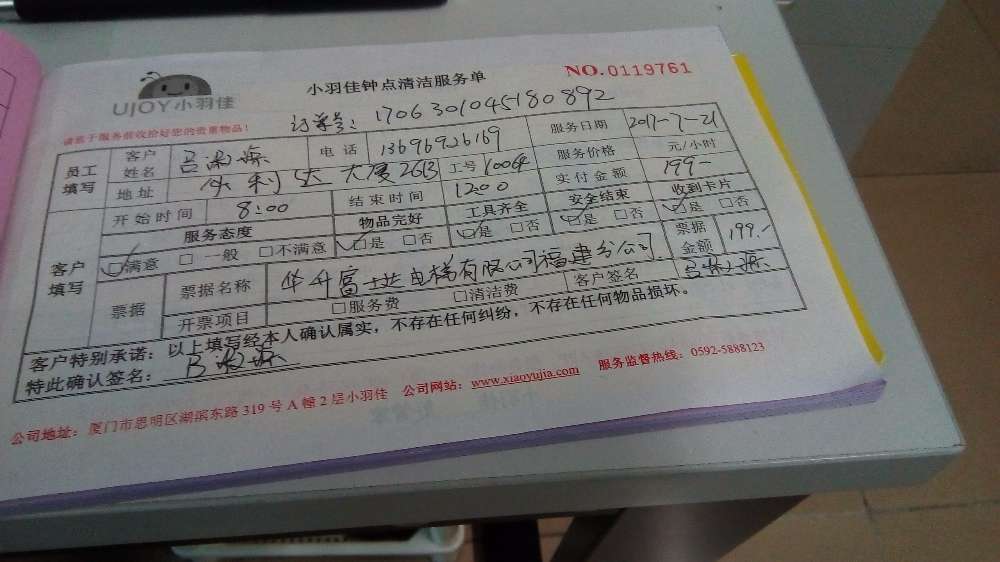 UJOY小羽佳
小羽佳钟点清洁服务单
NO.0119761
请您于服务前收拾好您的贵重物品!
订单号: 1706301045180892
员工填写
客户姓名 吕
电话 13696926169
服务日期 2017-7-21
地址 利达大厦2613
工号 10064
服务价格 元/小时
开始时间 8:00
结束时间 12:00
实付金额 199-
客户填写
服务态度
物品完好
工具齐全
安全结束
收到卡片
☑满意 □一般 □不满意
☑是 □否
☑是 □否
☑是 □否
☑是 □否
票据
票据名称 华升富士达电梯有限公司福建分公司
票据金额 199.-
开票项目 □服务费 □清洁费
客户签名 吕
客户特别承诺:以上填写经本人确认属实,不存在任何纠纷,不存在任何物品损坏。
特此确认签名: 吕
公司地址:厦门市思明区湖滨东路319号A幢2层小羽佳 公司网站:www.xiaoyujia.com 服务监督热线:0592-5888123